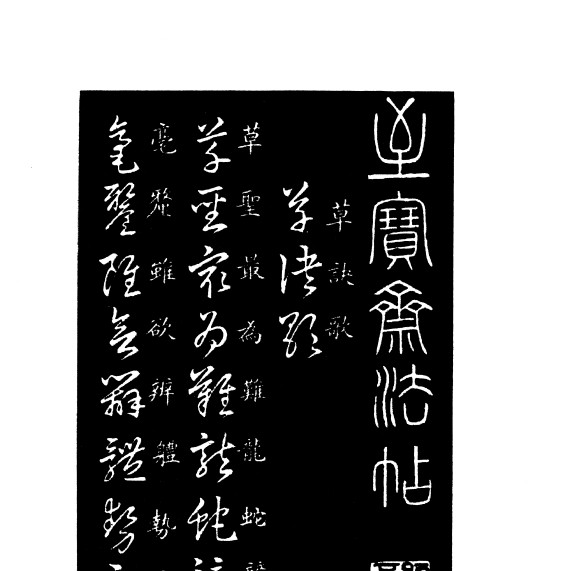 至寶齋法帖
草訣歌
草訣歌
草聖最為難龍蛇
草聖最為難龍蛇
毫釐雖欲辨體勢
毫釐雖欲辨體勢